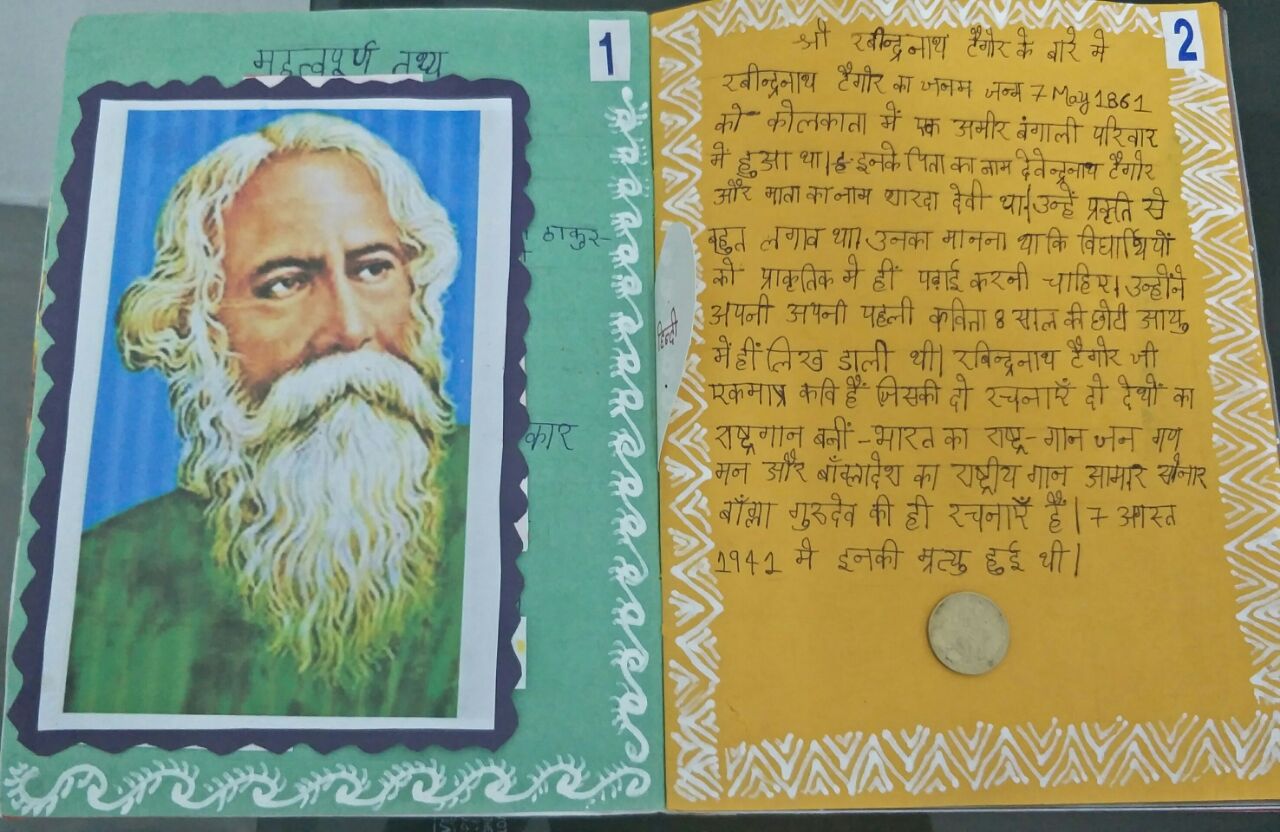 महत्वपूर्ण तथ्य
1
ठाकुर-
कार
हिन्दी
2
श्री रबीन्द्रनाथ टैगोर के बारे मे
रबीन्द्रनाथ टैगोर का जनम जन्म 7 May 1861
को कोलकाता में एक अमीर बंगाली परिवार
में हुआ था। इनके पिता का नाम देवेन्द्रनाथ टैगोर
और माता का नाम शारदा देवी था। उन्हें प्रकृति से
बहुत लगाव था। उनका मानना था कि विद्यार्थियों
को प्राकृतिक मे हीं पढ़ाई करनी चाहिए। उन्होंने
अपनी अपनी पहली कविता 8 साल की छोटी आयु
में हीं लिख डाली थी। रबिन्द्रनाथ टैगोर जी
एकमात्र कवि हैं जिसकी दो रचनाएँ दो देशों का
राष्ट्रगान बनीं - भारत का राष्ट्र-गान जन गण
मन और बाँग्लादेश का राष्ट्रीय गान आमार सोनार
बाँग्ला गुरुदेव की ही रचनाएँ हैं। 7 अगस्त
1941 मे इनकी म्रत्यु हुई थी।